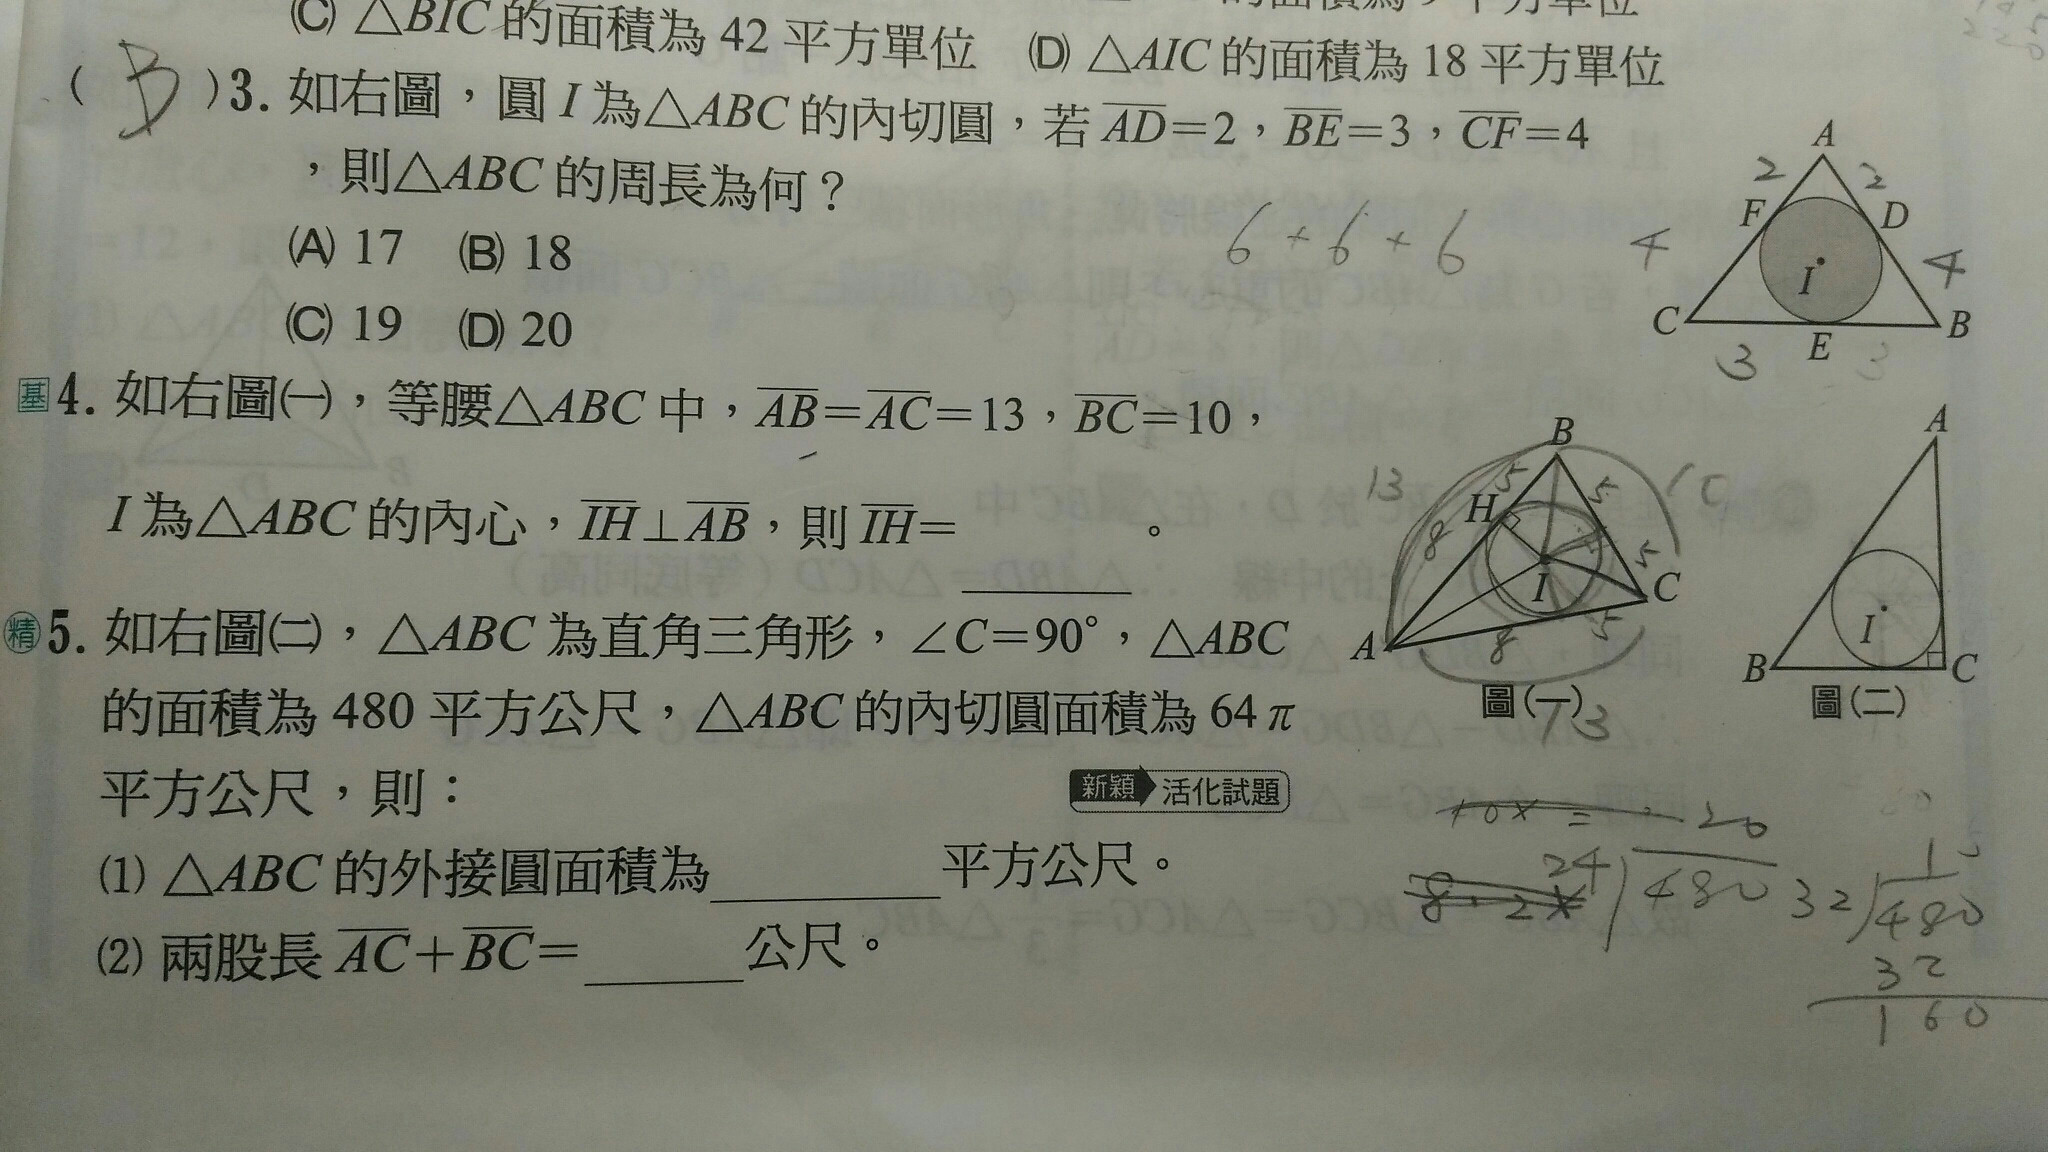 (C) △BIC 的面積為 42 平方單位 (D) △AIC 的面積為 18 平方單位
( B )3. 如右圖，圓 I 為△ABC 的內切圓，若 AD=2，BE=3，CF=4
，則△ABC 的周長為何？
(A) 17 (B) 18
(C) 19 (D) 20
6+6+6
A
2
2
F
D
4
4
I
C
B
E
3
3
基4. 如右圖(一)，等腰△ABC 中，AB=AC=13，BC=10，
I 為△ABC 的內心，IH⊥AB，則 IH=　　　。
B
13
5
5
10
H
8
5
I
C
A
8
5
圖(一)
13
A
I
B
C
圖(二)
精5. 如右圖(二)，△ABC 為直角三角形，∠C=90°，△ABC
的面積為 480 平方公尺，△ABC 的內切圓面積為 64π
平方公尺，則：
新穎 活化試題
(1) △ABC 的外接圓面積為________平方公尺。
(2) 兩股長 AC+BC=______公尺。
10x =
20
24 480
8·2x
1
32 480
32
160